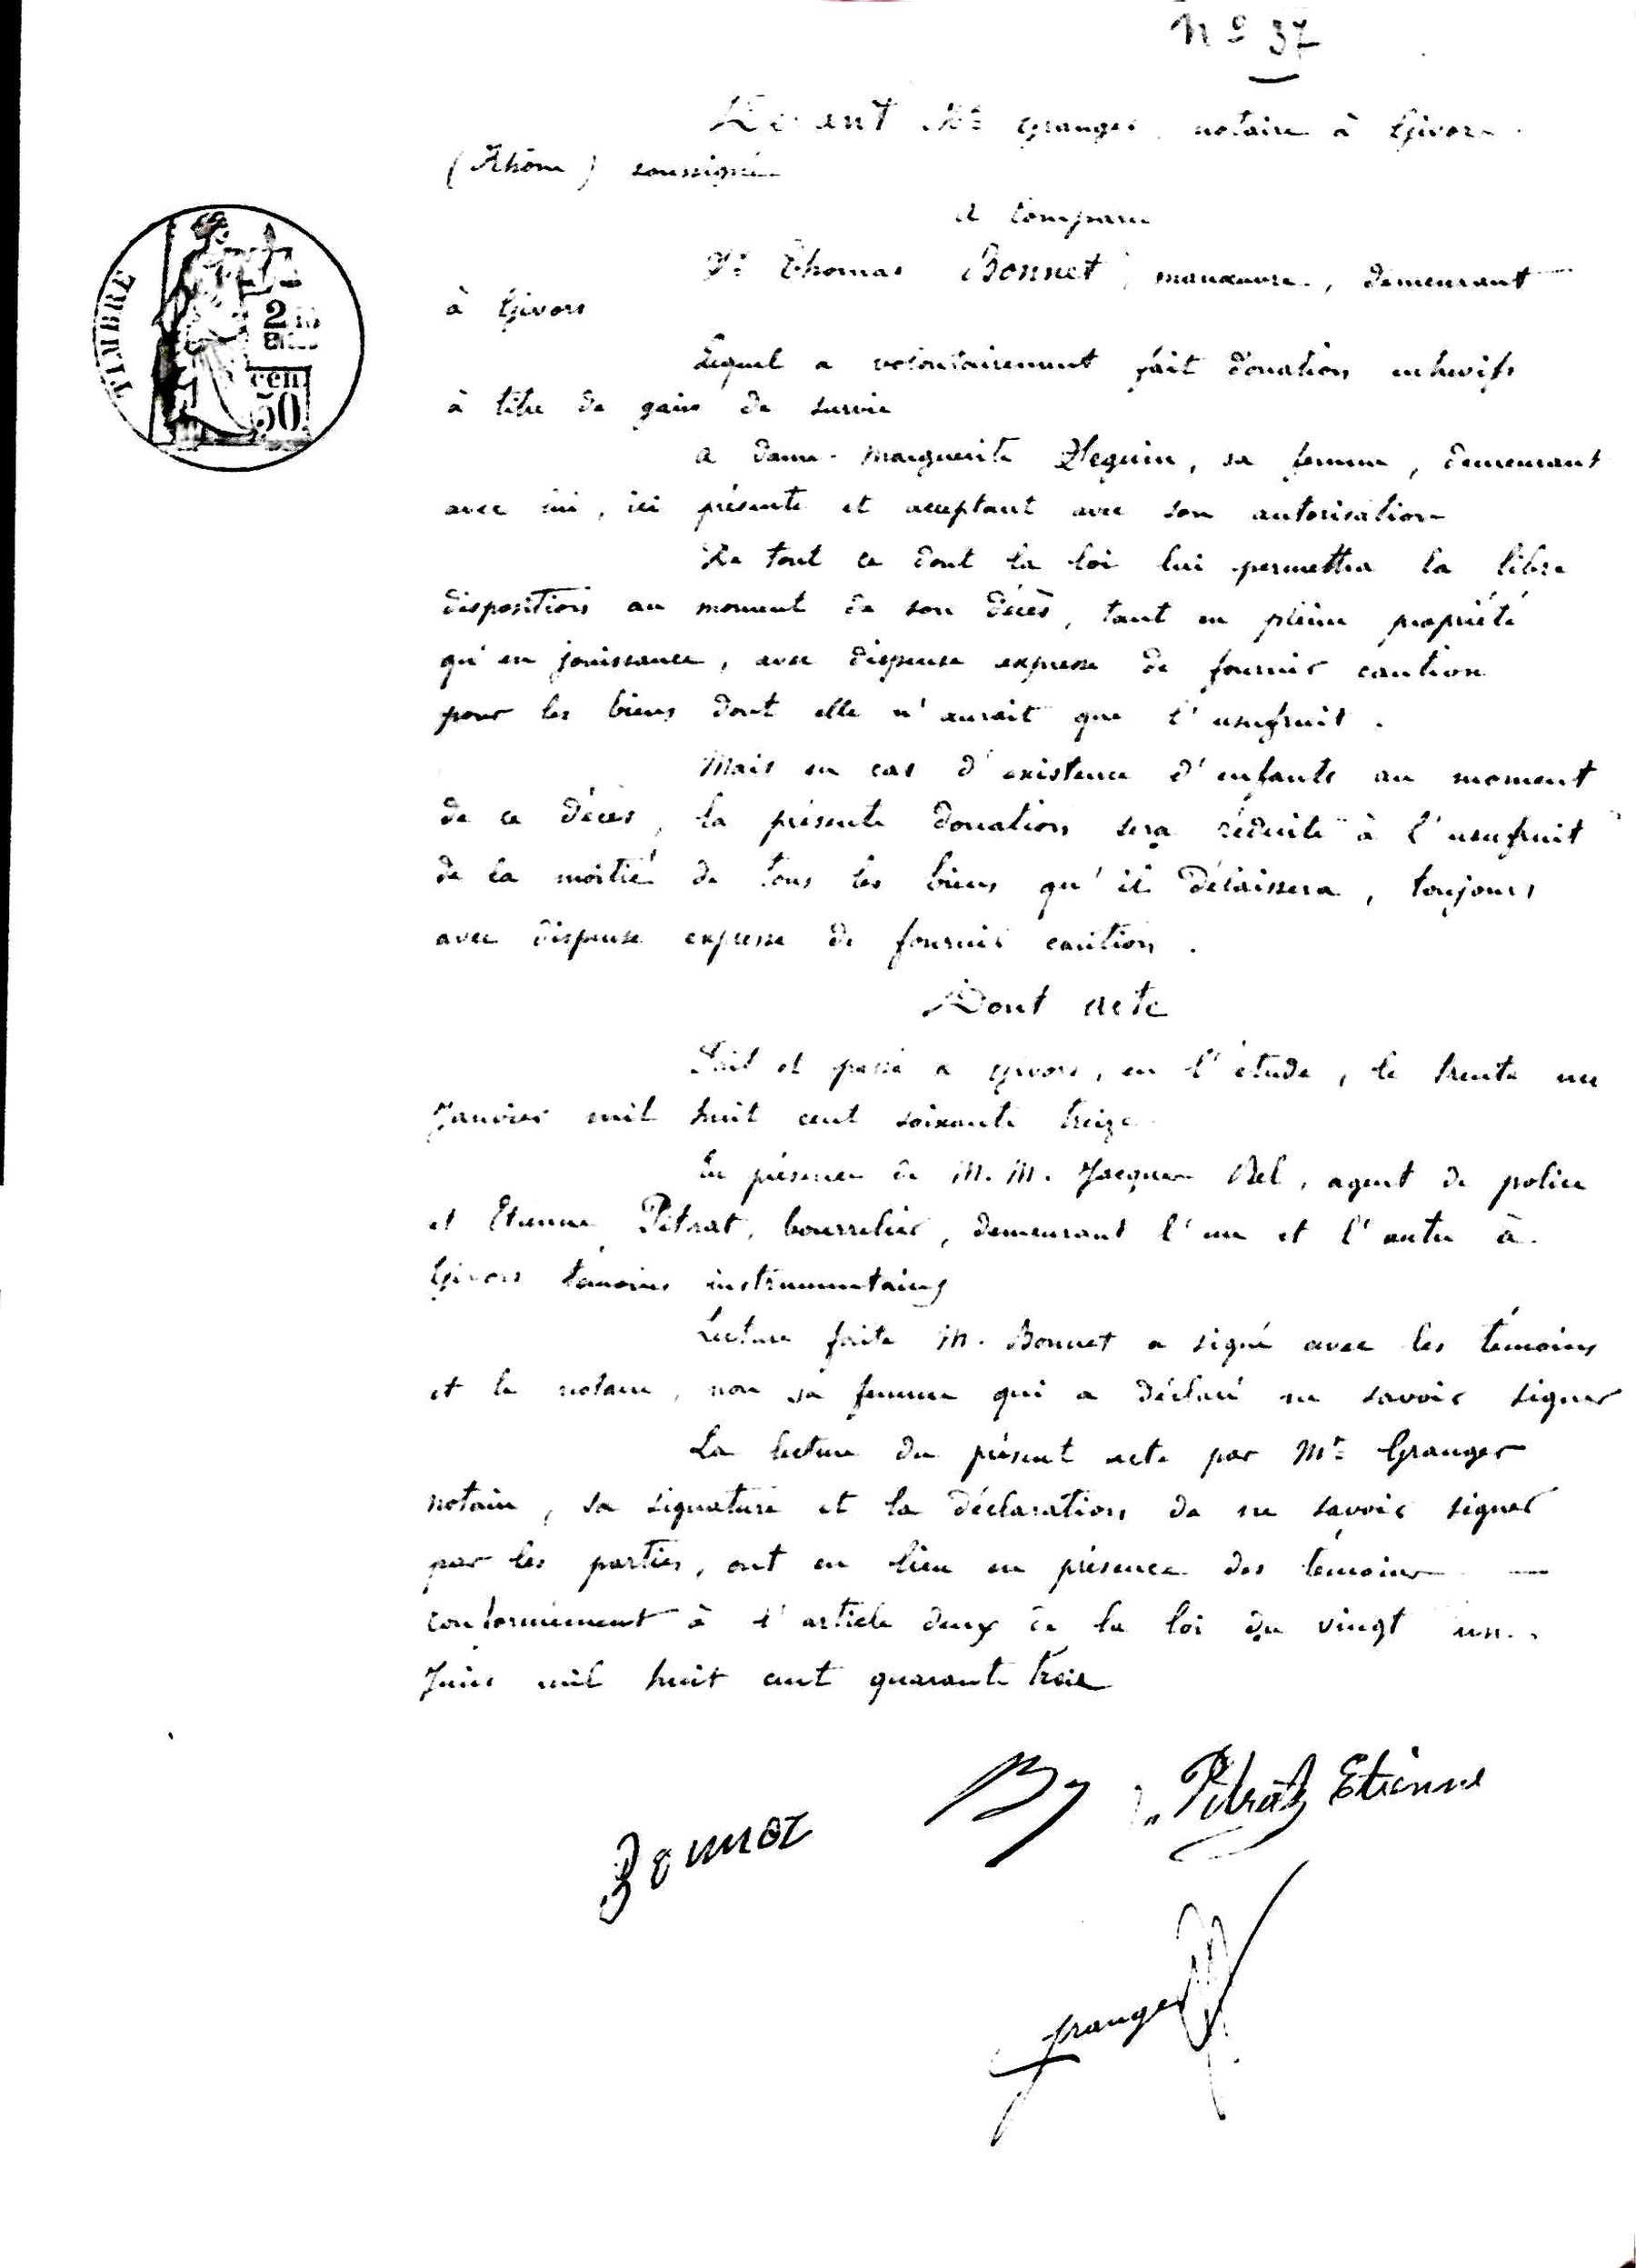 N° 37
Devant Me Granger, notaire à Givors
(Rhône) soussigné
A comparu
Sr Thomas Bonnet, manœuvre, demeurant
à Givors
Lequel a volontairement fait donation entrevifs
à titre de gain de survie
A dame Marguerite Seguin, sa femme, demeurant
avec lui, ici présente et acceptant avec son autorisation
De tout ce dont la loi lui permettra la libre
disposition au moment de son décès, tant en pleine propriété
qu'en jouissance, avec dispense expresse de fournir caution
pour les biens dont elle n'aurait que l'usufruit.
Mais en cas d'existence d'enfants au moment
de ce décès, la présente donation sera réduite à l'usufruit
de la moitié de tous les biens qu'il délaissera, toujours
avec dispense expresse de fournir caution.
Dont acte
Fait et passé à Givors, en l'étude, le trente un
Janvier mil huit cent soixante treize
En présence de M. M. Jacques Bel, agent de police
et Etienne Pitrat, bourrelier, demeurant l'un et l'autre à
Givors témoins instrumentaires
Lecture faite M. Bonnet a signé avec les témoins
et le notaire, non sa femme qui a déclaré ne savoir signer
La lecture du présent acte par Me Granger
notaire, sa signature et la déclaration de ne savoir signer
par les parties, ont eu lieu en présence des témoins
conformément à l'article deux de la loi du vingt un
Juin mil huit cent quarante trois
Bonnet
Pitrat Etienne
Granger
TIMBRE
2
cen
50